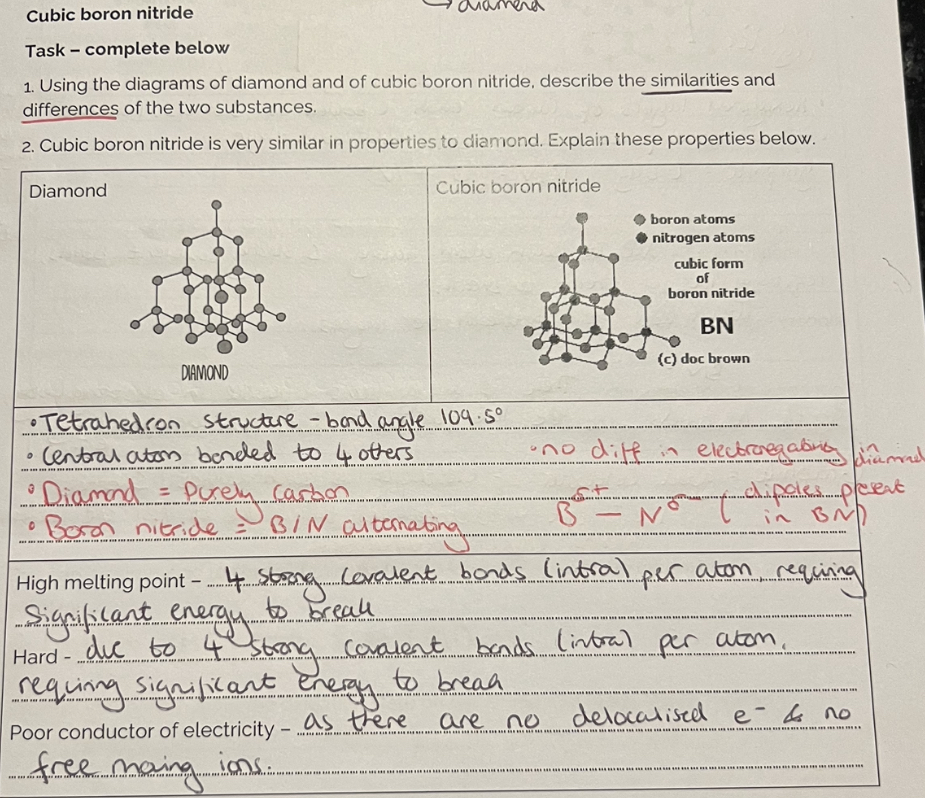 → diamond
Cubic boron nitride
Task – complete below
1. Using the diagrams of diamond and of cubic boron nitride, describe the similarities and
differences of the two substances.
2. Cubic boron nitride is very similar in properties to diamond. Explain these properties below.
Diamond
DIAMOND
Cubic boron nitride
boron atoms
nitrogen atoms
cubic form
of
boron nitride
BN
(c) doc brown
• Tetrahedron structure - bond angle 109.5°
• Central atom bonded to 4 others
• no diff in electronegativity in diamond
• Diamond = Purely carbon
• Boron nitride = B/N alternating
Bδ+ — Nδ- (dipoles present
in BN)
High melting point – 4 strong covalent bonds (intra) per atom, requiring
significant energy to break
Hard - due to 4 strong covalent bonds (intra) per atom,
requiring significant energy to break
Poor conductor of electricity – as there are no delocalised e- & no
free moving ions.